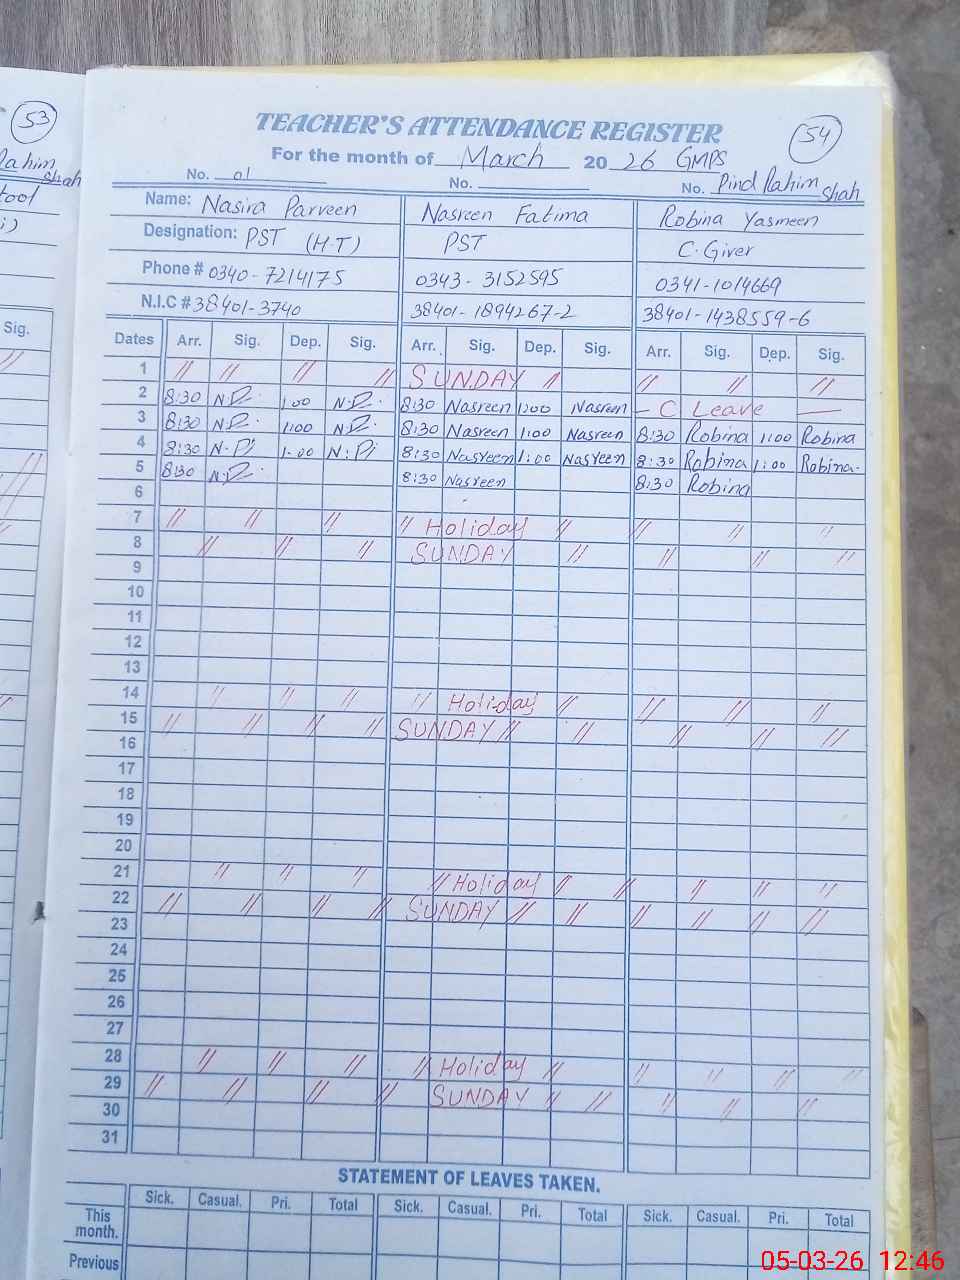 53
TEACHER'S ATTENDANCE REGISTER
54
For the month of March 2026 GMPS
No. 01 No. No. Pind Rahim Shah
Name: Nasira Parveen Nasreen Fatima Robina Yasmeen
Designation: PST (H-T) PST C.Giver
Phone # 0340-7214175 0343-3152595 0341-1014669
N.I.C # 38401-3740 38401-1894267-2 38401-1438559-6
Dates Arr. Sig. Dep. Sig. Arr. Sig. Dep. Sig. Arr. Sig. Dep. Sig.
1 // // // // SUNDAY // // // //
2 8:30 1:00 8:30 Nasreen 1:00 Nasreen — C Leave —
3 8:30 1:00 8:30 Nasreen 1:00 Nasreen 8:30 Robina 1:00 Robina
4 8:30 1:00 8:30 Nasreen 1:00 Nasreen 8:30 Robina 1:00 Robina
5 8:30 8:30 Nasreen 8:30 Robina
6
7 // // // // Holiday // // // //
8 // // // SUNDAY // // // //
9
10
11
12
13
14 // // // // Holiday // // // //
15 // // // // SUNDAY // // // // //
16
17
18
19
20
21 // // // // Holiday // // // // //
22 // // // // SUNDAY // // // // // //
23
24
25
26
27
28 // // // // Holiday // // // // //
29 // // // // SUNDAY // // // // //
30
31
STATEMENT OF LEAVES TAKEN.
Sick. Casual. Pri. Total Sick. Casual. Pri. Total Sick. Casual. Pri. Total
This month.
Previous
05-03-26 12:46